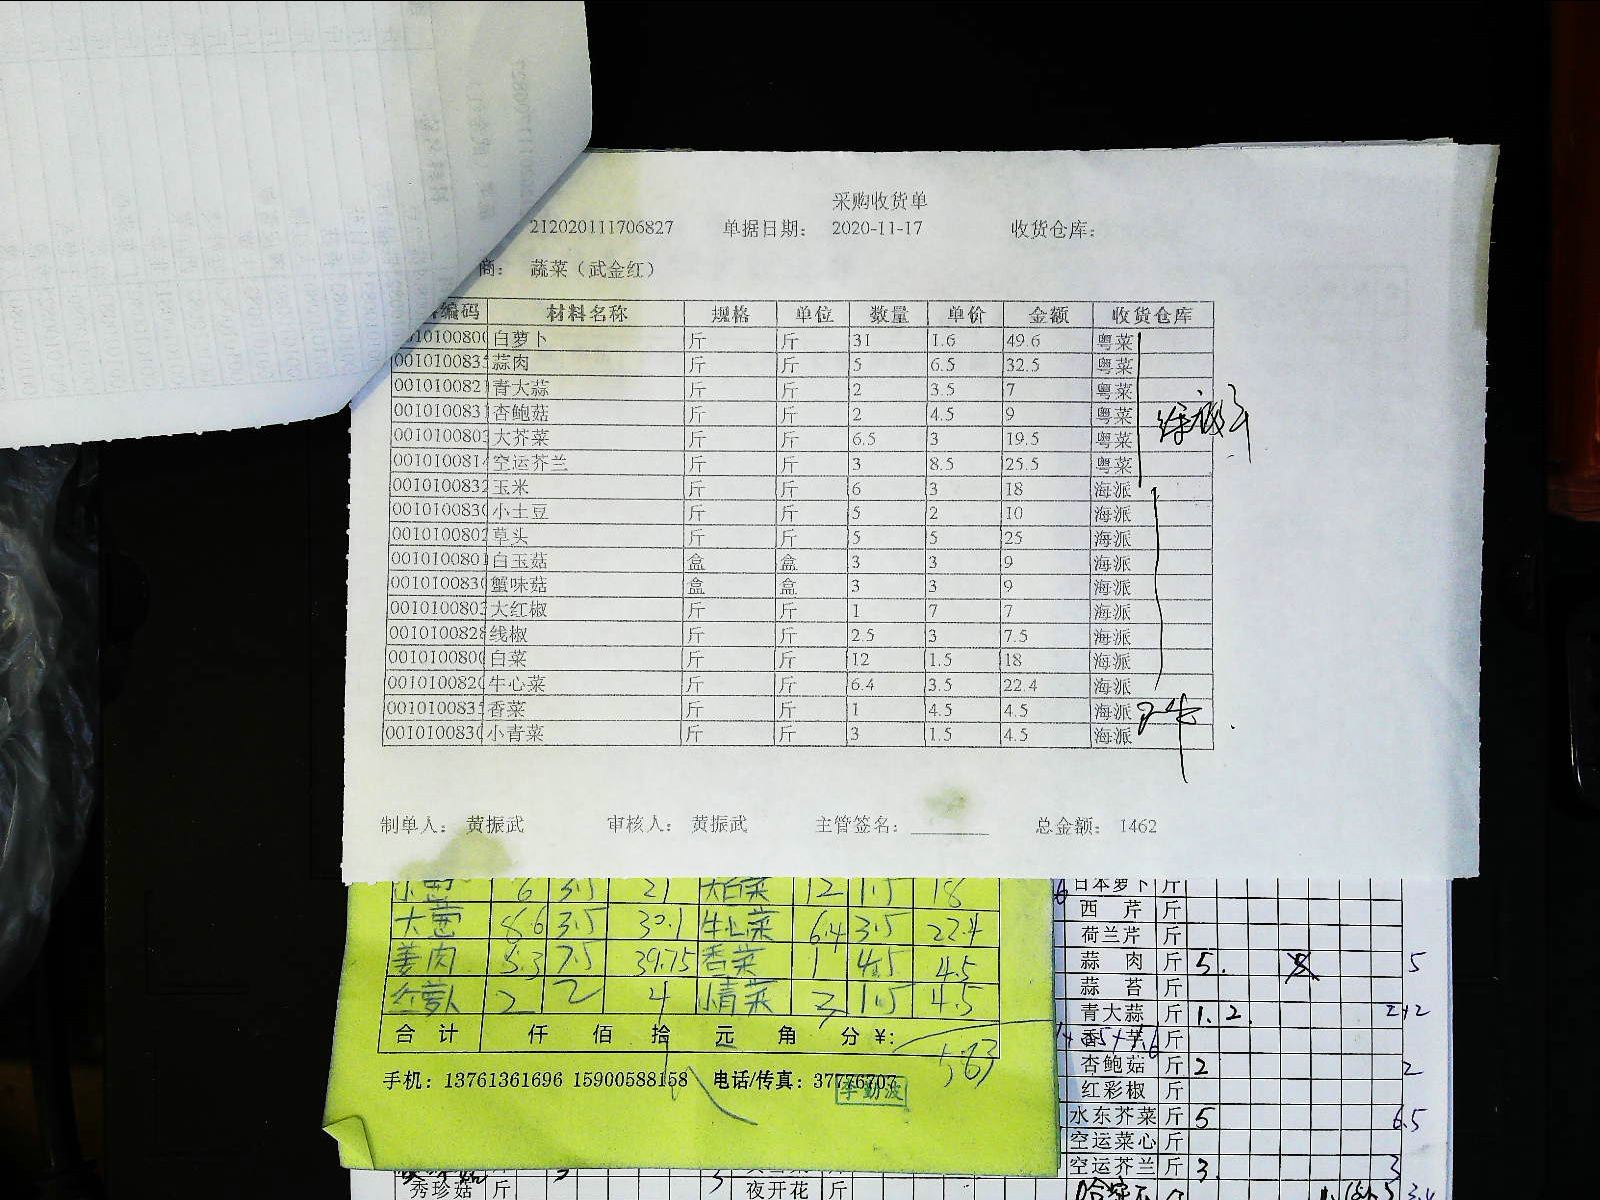 采购收货单
212020111706827 单据日期： 2020-11-17 收货仓库：
商： 蔬菜（武金红）
编码 材料名称 规格 单位 数量 单价 金额 收货仓库
白萝卜 斤 斤 31 1.6 49.6 粤菜
001010083 蒜肉 斤 斤 5 6.5 32.5 粤菜
001010082 青大蒜 斤 斤 2 3.5 7 粤菜
001010083 杏鲍菇 斤 斤 2 4.5 9 粤菜
001010080 大芥菜 斤 斤 6.5 3 19.5 粤菜
001010081 空运芥兰 斤 斤 3 8.5 25.5 粤菜
001010083 玉米 斤 斤 6 3 18 海派
001010083 小土豆 斤 斤 5 2 10 海派
001010080 草头 斤 斤 5 5 25 海派
001010080 白玉菇 盒 盒 3 3 9 海派
001010083 蟹味菇 盒 盒 3 3 9 海派
001010080 大红椒 斤 斤 1 7 7 海派
001010082 线椒 斤 斤 2.5 3 7.5 海派
001010080 白菜 斤 斤 12 1.5 18 海派
001010082 牛心菜 斤 斤 6.4 3.5 22.4 海派
001010083 香菜 斤 斤 1 4.5 4.5 海派
001010083 小青菜 斤 斤 3 1.5 4.5 海派
制单人： 黄振武 审核人： 黄振武 主管签名： 总金额： 1462
6 3.5 21 大白菜 12 1.5 18
大葱 8.6 3.5 30.1 牛心菜 6.4 3.5 22.4
姜肉 5.3 7.5 39.75 香菜 1 4.5 4.5
红萝卜 2 2 4 小青菜 3 1.5 4.5
合计 仟 佰 拾 元 角 分 ¥：
583
手机：13761361696 15900588158 电话/传真：37776707
李勤波
日本萝卜 斤
西芹 斤
荷兰芹 斤
蒜肉 斤 5. 5
蒜苔 斤
青大蒜 斤 1. 2. 2+2
香芋 斤
杏鲍菇 斤 2 2
红彩椒 斤
水东芥菜 斤 5 6.5
空运菜心 斤
空运芥兰 斤 3. 3
秀珍菇 斤 3 夜开花 斤